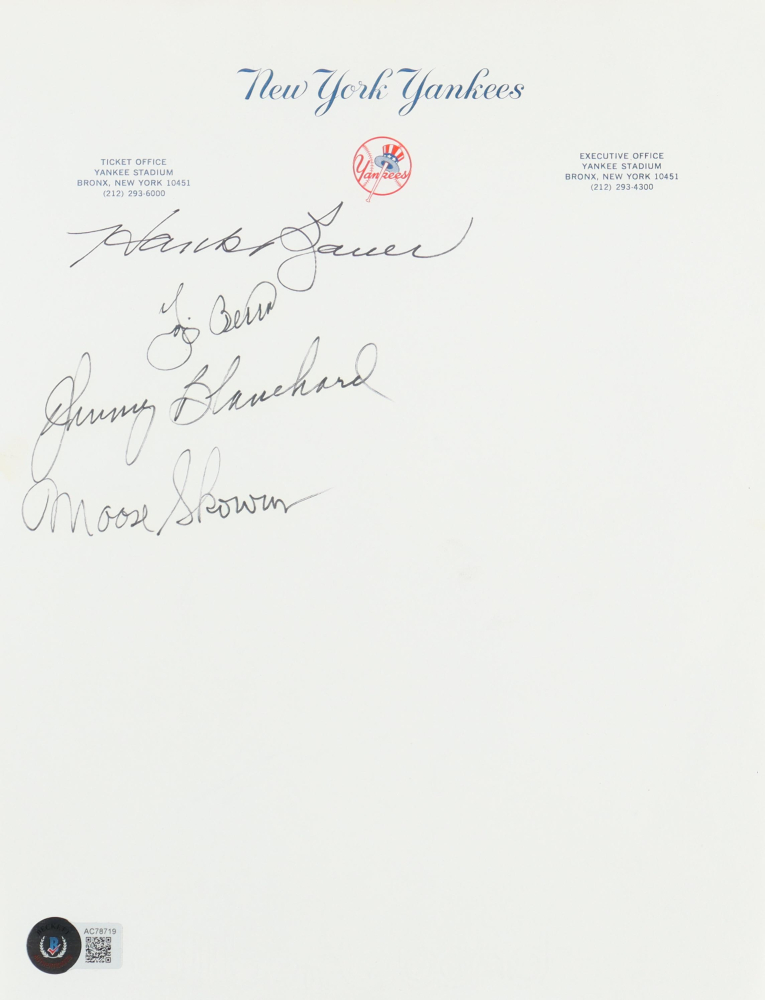 New York Yankees
TICKET OFFICE
YANKEE STADIUM
BRONX, NEW YORK 10451
(212) 293-6000
Yankees
EXECUTIVE OFFICE
YANKEE STADIUM
BRONX, NEW YORK 10451
(212) 293-4300
Hank Bauer
Yogi Berra
Johnny Blanchard
Moose Skowron
B
AC78719